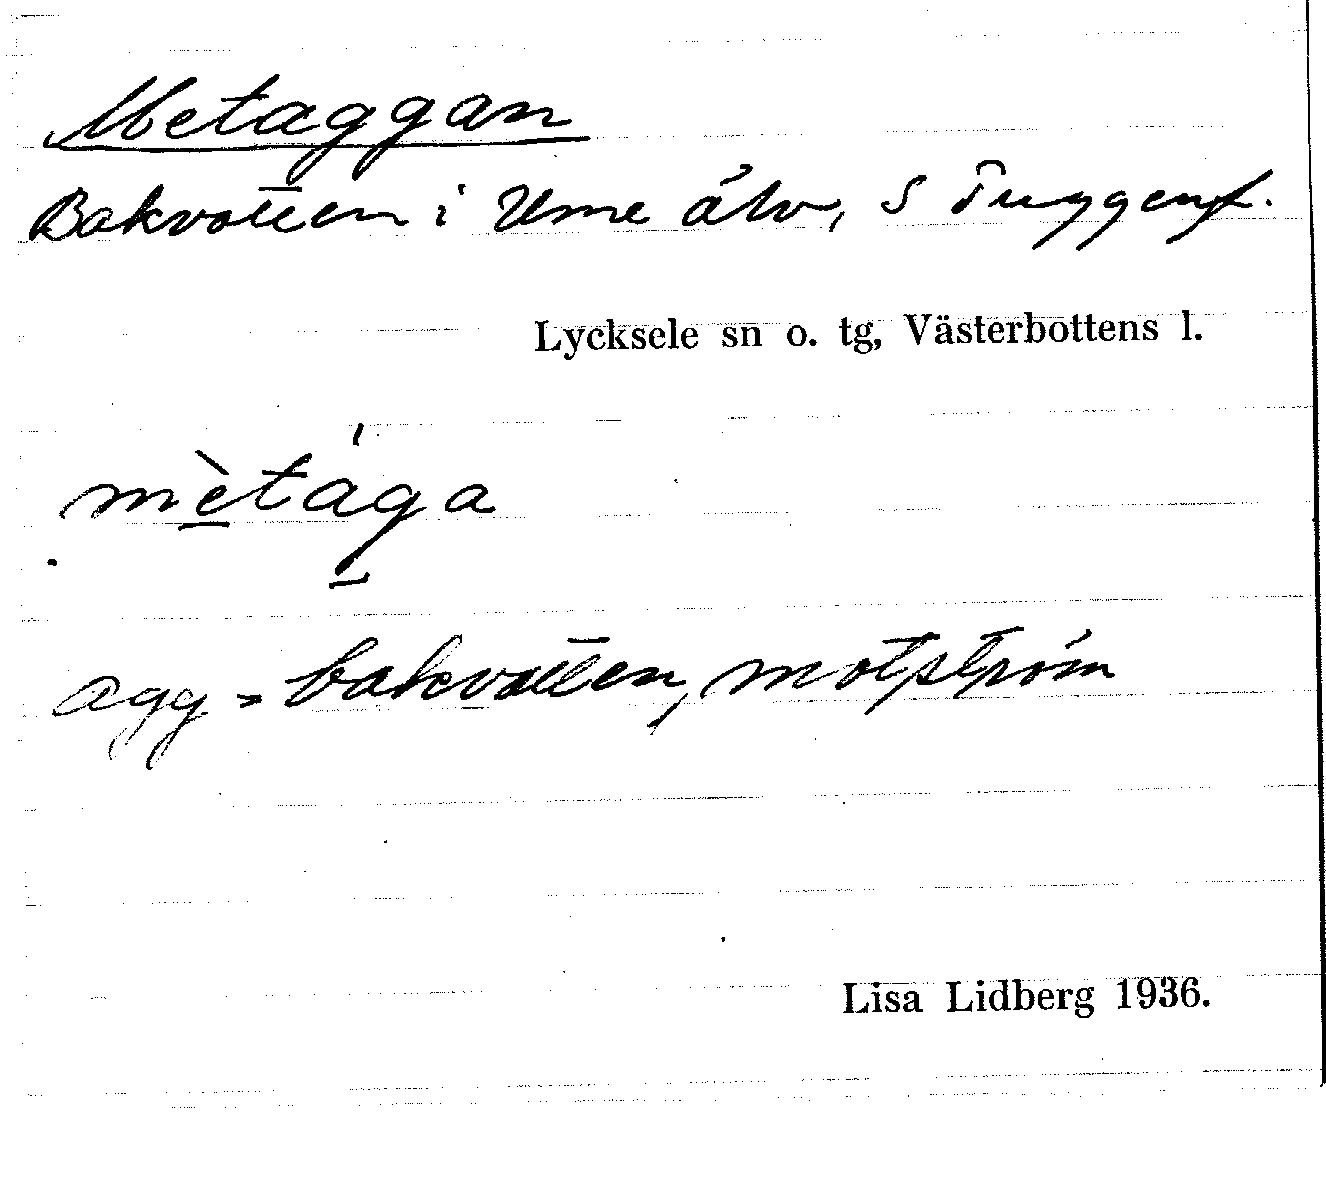 Metaggan
Bakvatten i Ume älv, S Tuggenf.
Lycksele sn o. tg, Västerbottens l.
mètága
agg = bakvatten, motström
Lisa Lidberg 1936.